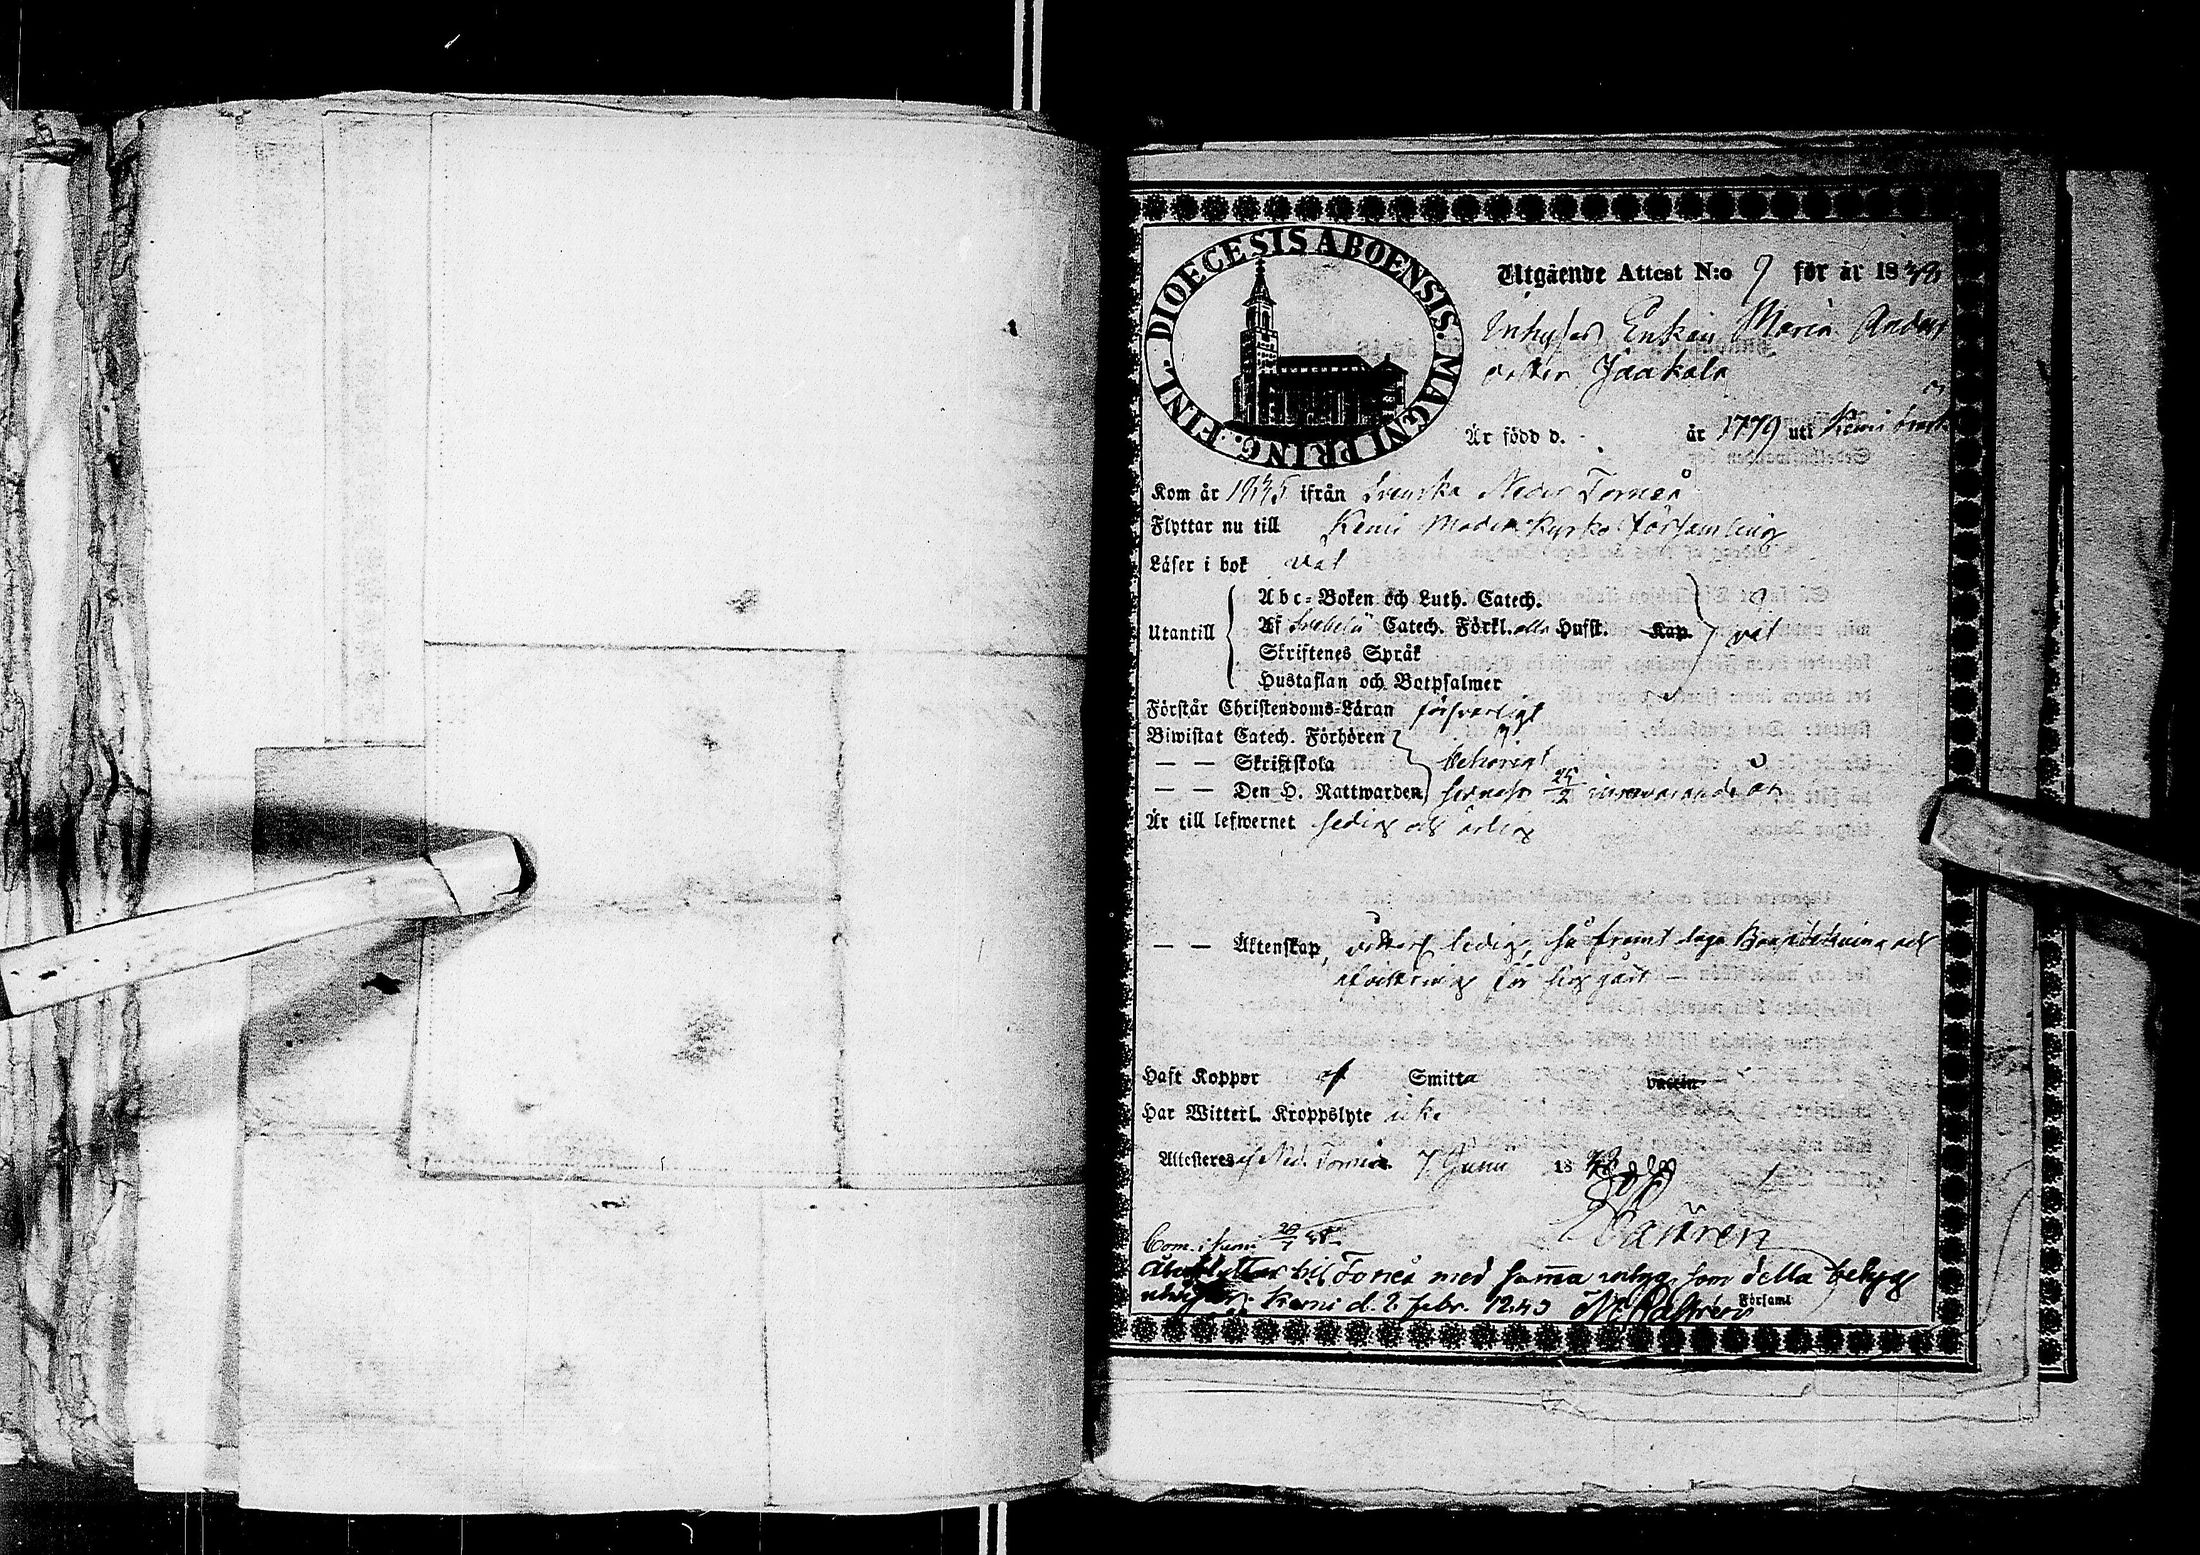 DIOECESIS ABOENSIS. MAGNI PRINC. FINL.
Utgående Attest N:o 9 för år 18
Inhyses Enkan Maria Anders
dotter Jaakola
Är född d. år 1779 uti Kemi
Kom år ifrån Svenska Neder Torneå
Flyttar nu till Kemi Moderkyrko församling
Läser i bok väl
Utantill
Abc-Boken och Luth. Catech.
Af Svebelii Catech. Förkl. alla Hufst. Kap. väl
Skriftenes Språk
Hustaflan och Botpsalmer
Förstår Christendoms-Läran försvarligt
Biwistat Catech. Förhören
— — Skriftskola behörigt
— — Den H. Nattwarden senast 25/2 innevarande år
Är till lefwernet sedig och ärlig
— — Äktenskap, veterl. ledig, så framt laga
för sig gått —
Haft Koppor af Smitta vaccin
Har Witterl. Kroppslyte icke
Attesteres af Ned. Torneå 7 Junii 18
Castrén
Com. i Kemi
Återflyttar till Torneå med samma som detta betyg
Kemi d. 2 febr. M. Castrén
Församl